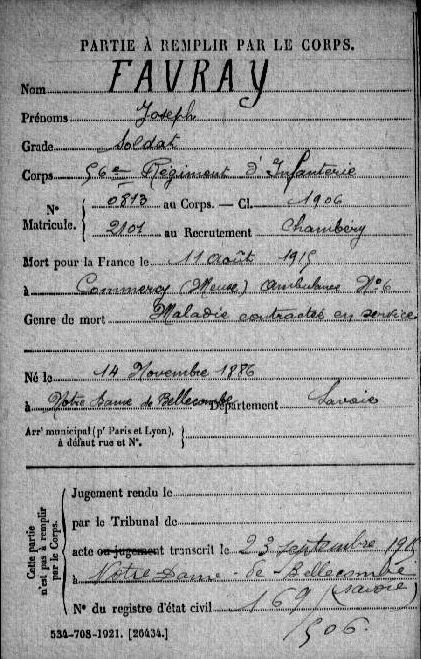 PARTIE À REMPLIR PAR LE CORPS.
Nom FAVRAY
Prénoms Joseph
Grade Soldat
Corps 56e Régiment d'Infanterie
N° Matricule. { 0813 au Corps. — Cl. 1906
2101 au Recrutement Chambéry
Mort pour la France le 11 Août 1915
à Commercy (Meuse) Ambulance N° 6
Genre de mort Maladie contractée en service
Né le 14 Novembre 1886
à Notre Dame de Bellecombe Département Savoie
Arrt municipal (pr Paris et Lyon), à défaut rue et N°.
Cette partie n'est pas à remplir par le Corps.
Jugement rendu le
par le Tribunal de
acte ou jugement transcrit le 23 septembre 1915
à Notre Dame de Bellecombe
(Savoie)
N° du registre d'état civil 169
1506
534-708-1921. [26434.]